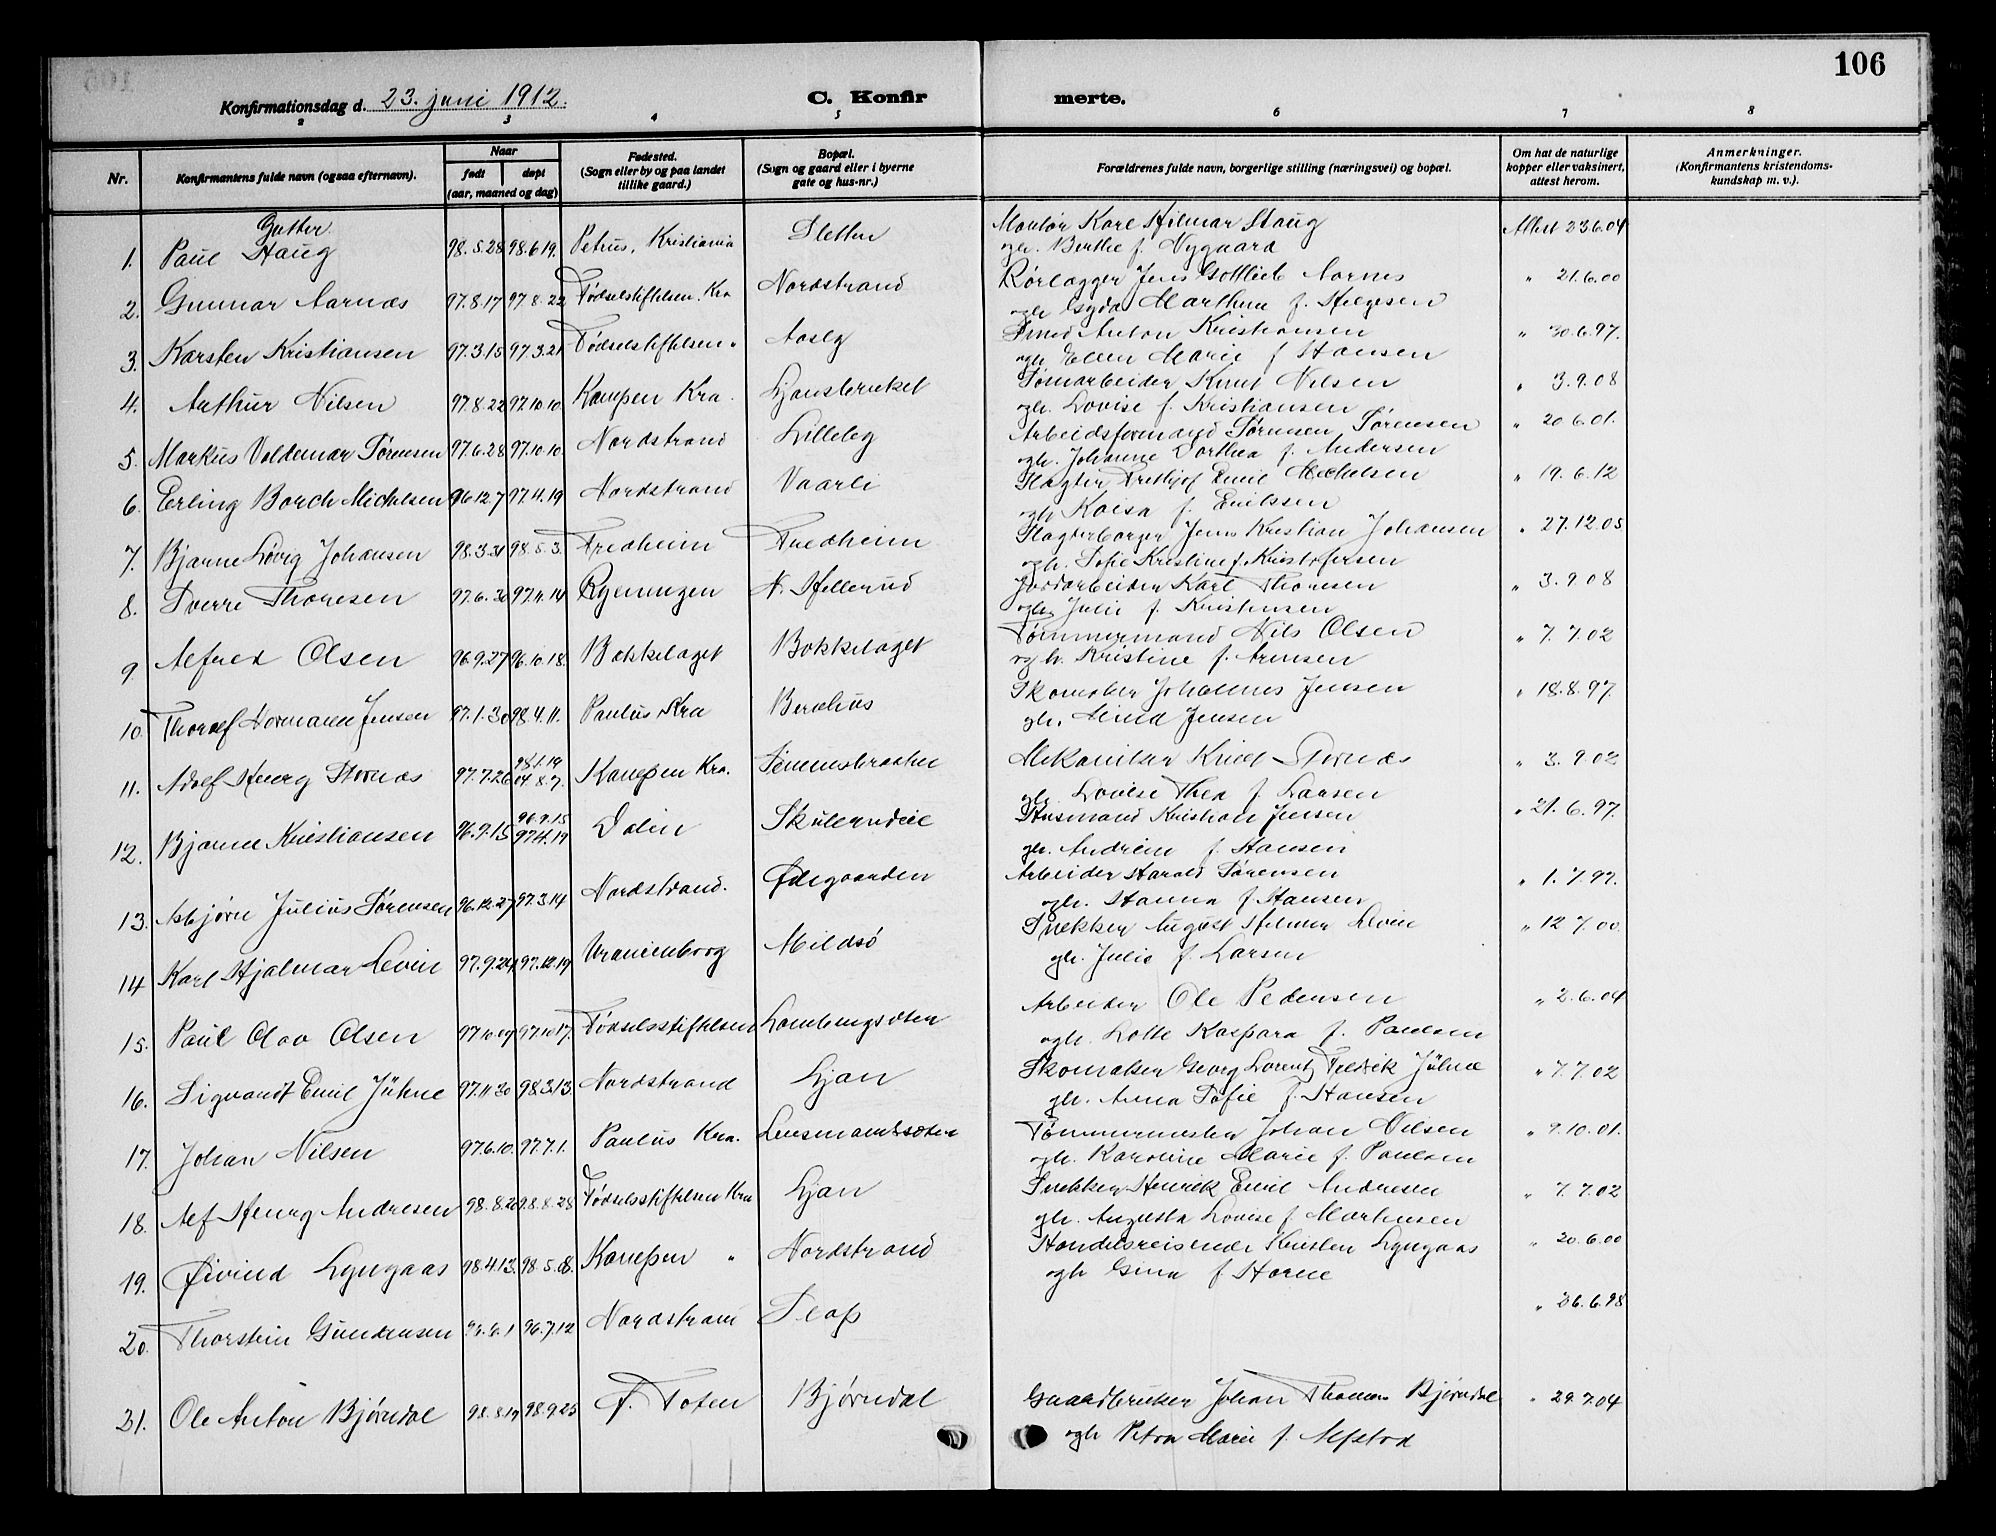 106
Konfirmationsdag d. 23. juni 1912.
C. Konfir merte.
2 3 4 5 6 7 8
Nr.
Konfirmantens fulde navn (ogsaa efternavn).
Naar
født
døpt
(aar, maaned og dag)
Fødested.
(Sogn eller by og paa landet
tillike gaard.)
Bopæl.
(Sogn og gaard eller i byerne
gate og hus-nr.)
Forældrenes fulde navn, borgerlige stilling (næringsvei) og bopæl.
Om hat de naturlige
kopper eller vaksinert,
attest herom.
Anmerkninger.
(Konfirmantens kristendoms-
kundskap m. v.).
Gutter.
1. Paul Haug 98.5.28 98.6.19. Petrus, Kristiania Sletten Montør Karl Hilmar Haug Attest 23.6.04
ogh. Berthe f. Nygaard
2. Gunnar Aarnæs 97.8.17 97.8.22 Fødselstiftelsen. Kra Nordstrand Rørlægger Jens Gottlieb Aarnes " 21.6.00
ogh Gyda Marthea f. Helgesen
3. Karsten Kristiansen 97.3.15 97.3.21 Fødselstiftelsen " Smed Anton Kristiansen " 30.6.97.
ogh Ellen Marie f Hansen
4. Arthur Nilsen 97.8.22 97.10.10. Kampen Kra. Ljansbruket Tømarbeider Knut Nilsen " 3.9.08
ogh. Lovise f. Kristiansen
5. Markus Valdemar Sørensen 97.6.28 97.10.10. Nordstrand Lilleby Arbeidsformand Sørensen Sørensen " 20.6.01.
ogh. Johanne Dorthea f. Andersen
6. Erling Borch Michelsen 96.12.7 97.4.19 Nordstrand Vaarli Slagter Frithjof Emil Michelsen " 19.6.12
ogh Kaisa f. Erikssen
7. Bjarne Johansen 98.3.31 98.5.3. Fredheim Fredheim Slagterborger Jens Kristian Johansen " 27.12.05
ogh. Sofie Kristine f. Kristofersen
8. Sverre Thoresen 97.6.30 97.11.14 Ryenungen N. Hellerud Jordarbeider Karl Thoresen " 3.9.08
ogh Julie f. Kristensen
9 Alfred Olsen 96.9.27 96.10.18. Bækkelaget Bækkelaget Tømmermand Nils Olsen " 7.7.02
ogh. Kristine f. Arnesen
10. Thoralf Normann Jensen 97.1.30 98.4.11. Paulus Kra Berghus Skomaker Johannes Jensen " 18.8.97.
gh. Jensen
11. Adolf Henry Stornæs 97.7.26 98.1.19 04.8.7. Kampen Kra. Simensbraaten Mekaniker Knut Stornæs " 3.9.02
gh. Lovise Thea f. Larsen
12. Bjarne Kristiansen 96.9.15 96.9.15 97.4.19 Dalen Skulerudeie Husmand Kristian Jensen " 21.6.97.
gh. Andrine f. Hansen
13. Asbjørn Julius Sørensen 96.12.27 97.3.14 Nordstrand. Ødegaarden Arbeider Harald Sørensen " 1.7.97.
ogh. Hanna f. Hansen
14 Karl Hjalmar Levin 97.9.24 97.12.19 Uranienborg Mildsø Snekker August Hilmer Levin " 12.7.00
gh. Julie f. Larsen
15. Paul Olav Olsen 97.10.09 97.10.17. Fødselsstiftelsen Arbeider Ole Pedersen " 2.6.04
ogh. Lotte Kaspara f. Paulsen
16. Sigvardt Emil Jühne 97.11.30 98.3.13. Nordstrand Ljan Skomaker Georg Lorentz Fredrik Jühne " 7.7.02
gh. Anna Sofie f. Hansen
17. Johan Nilsen 97.6.10. 97.7.1. Paulus Kra. Lensmandssæter Tømmermester Johan Nilsen " 9.10.01.
ogh. Karoline Marie f. Paulsen
18. Alf Henry Andresen 98.8.20 98.8.28 Fødselsstiftelsen Kra Ljan Snekker Henrik Emil Andresen " 7.7.02
gh. Augusta Lovise f. Marthinsen
19. Øivind Lyngaas 98.4.13. 98.5.08. Kampen " Nordstrand Handelsreisende Kristen Lyngaas " 20.6.00
ogh Gina f Horne
20. Thorstein Gundersen 96.6.1 96.7.12 Nordstrand " 26.6.98
21. Ole Anton Bjørndal 98.8.19 98.9.25 Ø. Toten Bjørndal Gaardbruker Johan Thomas Bjørndal " 29.7.04
ogh Petra Marie f. Alfstad